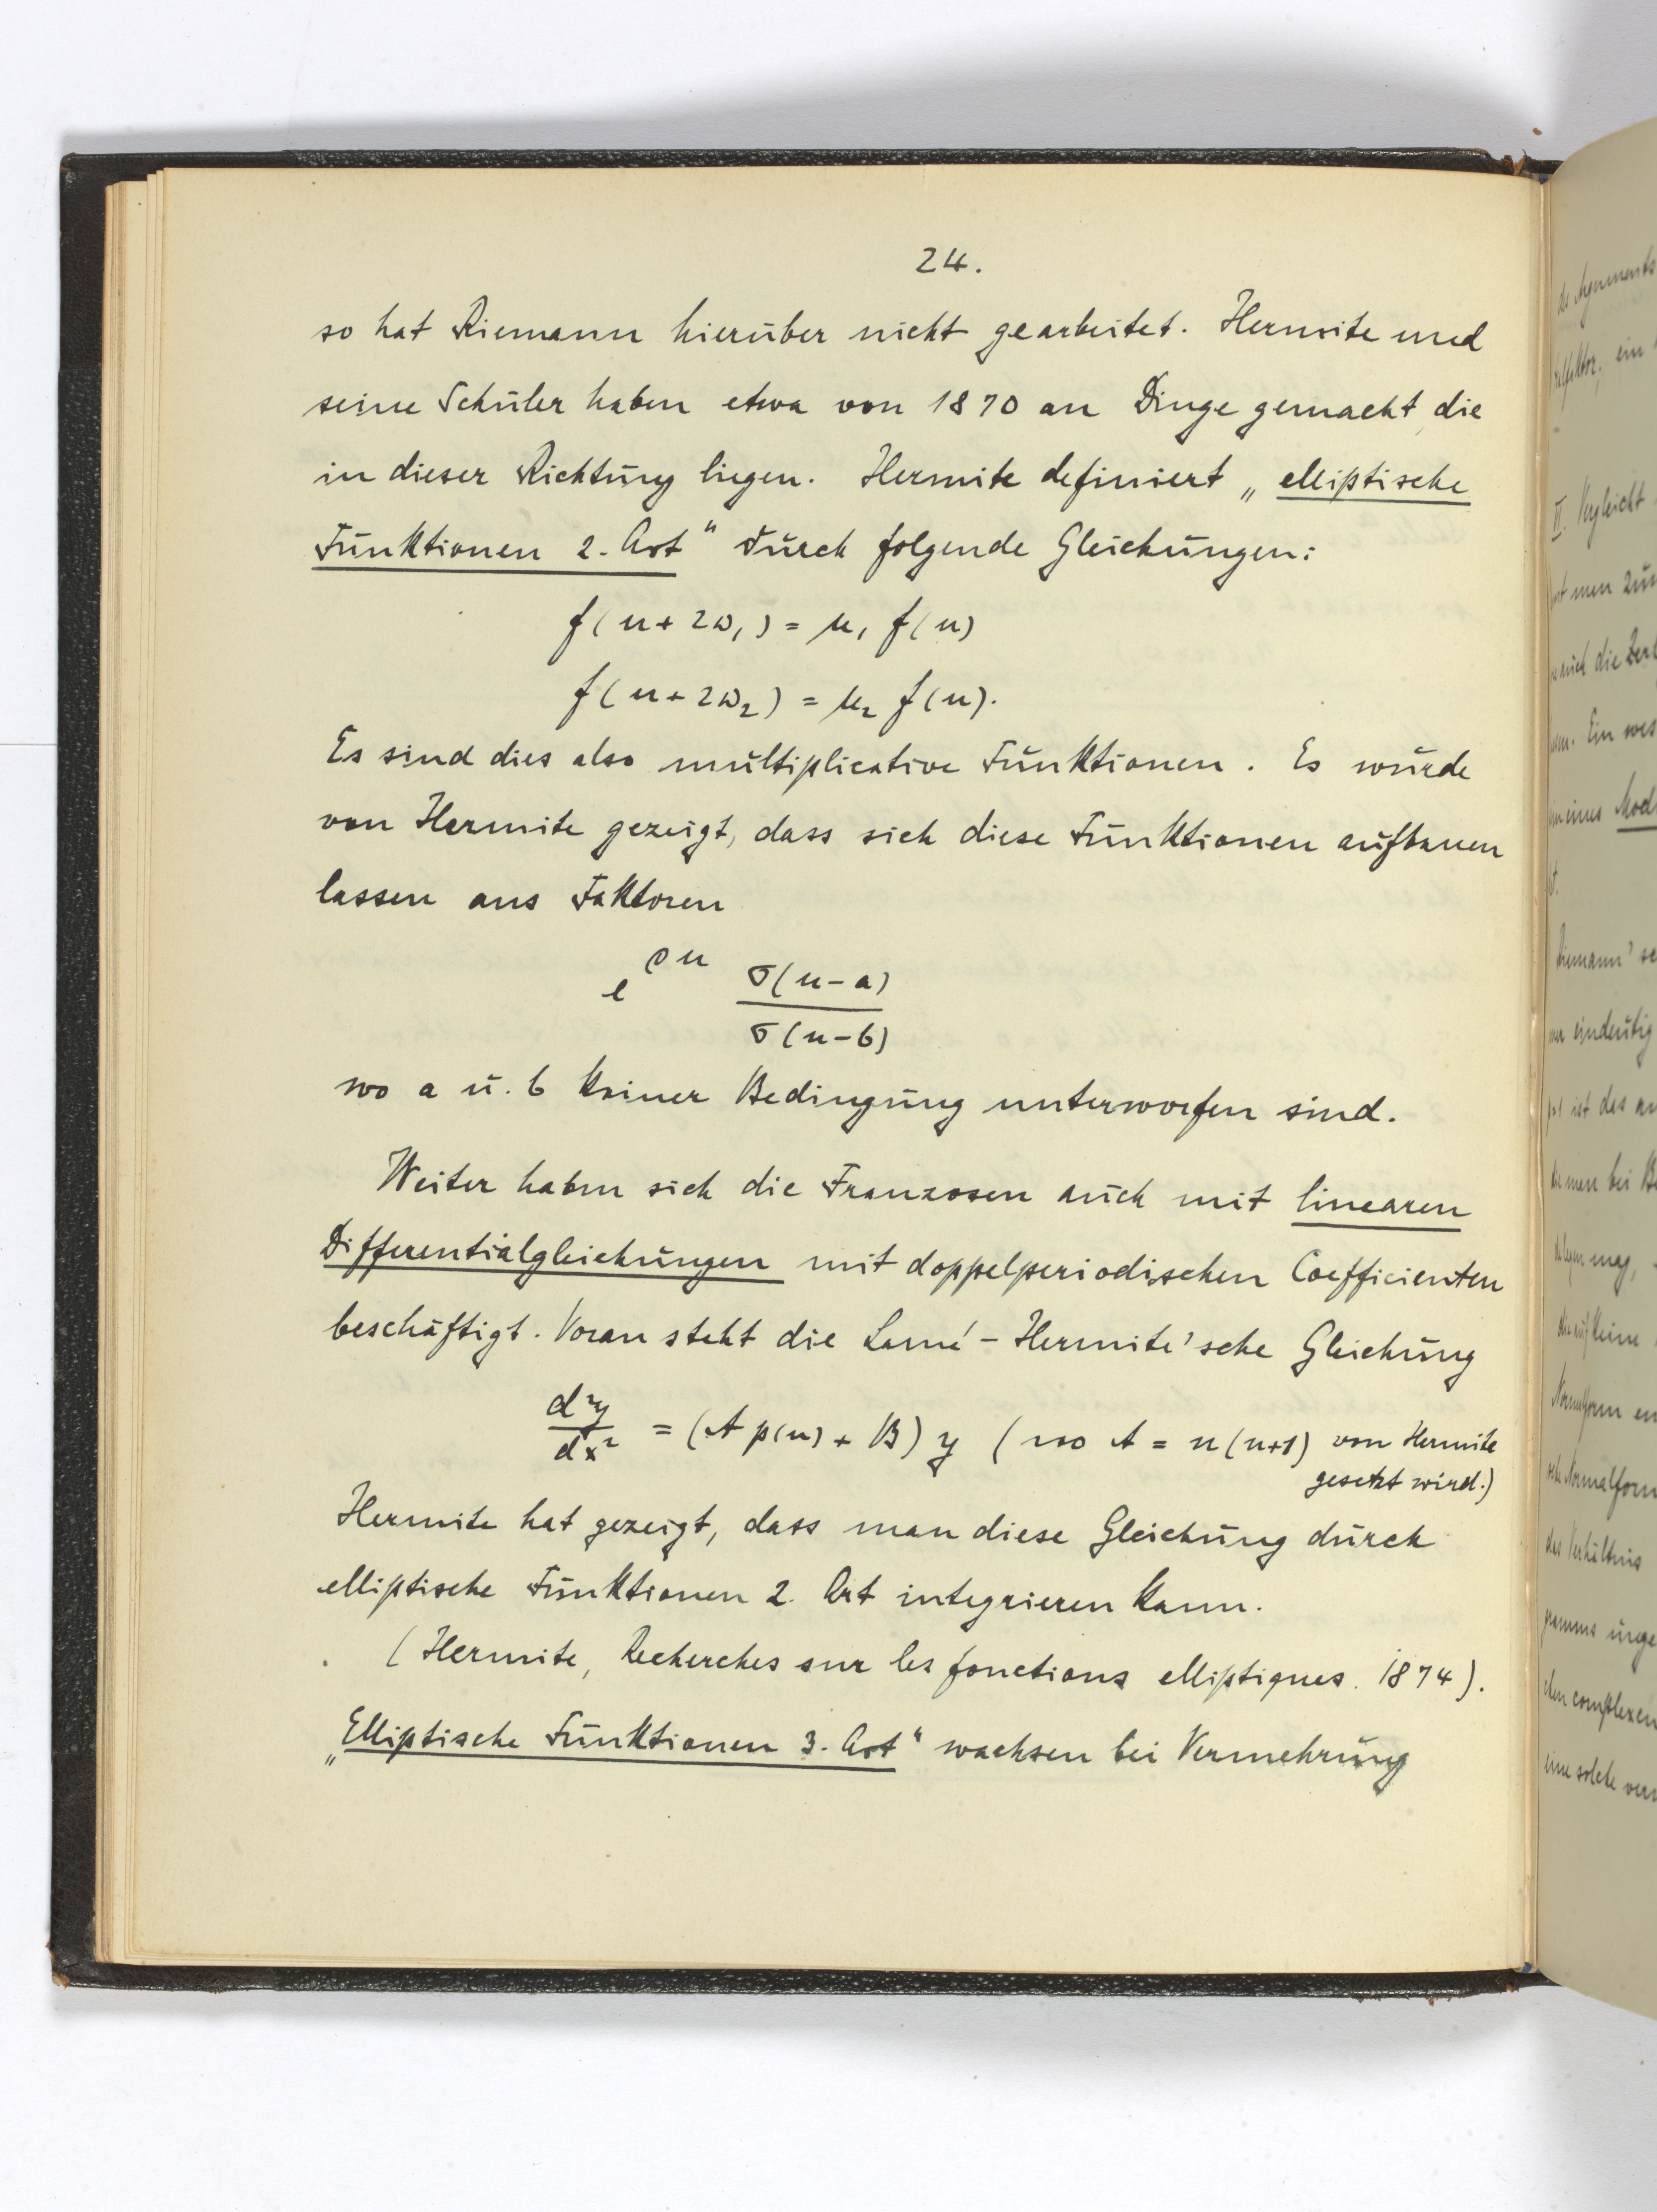 24.
so hat Riemann hierüber nicht gearbeitet. Hermite und
seine Schüler haben etwa von 1870 an Dinge gemacht, die
in dieser Richtung liegen. Hermite definiert „elliptische
Funktionen 2. Art“ durch folgende Gleichungen:
f(u+2ω₁) = μ₁ f(u)
f(u+2ω₂) = μ₂ f(u).
Es sind dies also multiplicative Funktionen. Es wurde
von Hermite gezeigt, dass sich diese Funktionen aufbauen
lassen aus Faktoren
e^{ρu} σ(u-a)/σ(u-b)
wo a u. b keiner Bedingung unterworfen sind.
Weiter haben sich die Franzosen auch mit linearen
Differentialgleichungen mit doppelperiodischen Coefficienten
beschäftigt. Voran steht die Lamé-Hermite'sche Gleichung
d²y/dx² = (A p(u) + B) y (wo A = n(n+1) von Hermite
gesetzt wird.)
Hermite hat gezeigt, dass man diese Gleichung durch
elliptische Funktionen 2. Art integrieren kann.
(Hermite, Recherches sur les fonctions elliptiques. 1874).
„Elliptische Funktionen 3. Art“ wachsen bei Vermehrung
des Arguments
ein
II. Vergleicht
man zun
auch die Zer
Ein wes
eines Mod
Riemann' sc
eindeutig
ist das an
man bei B
mag,
auf keine
Normalform en
Normalform
das Verhältnis
complexen
eine solche ver